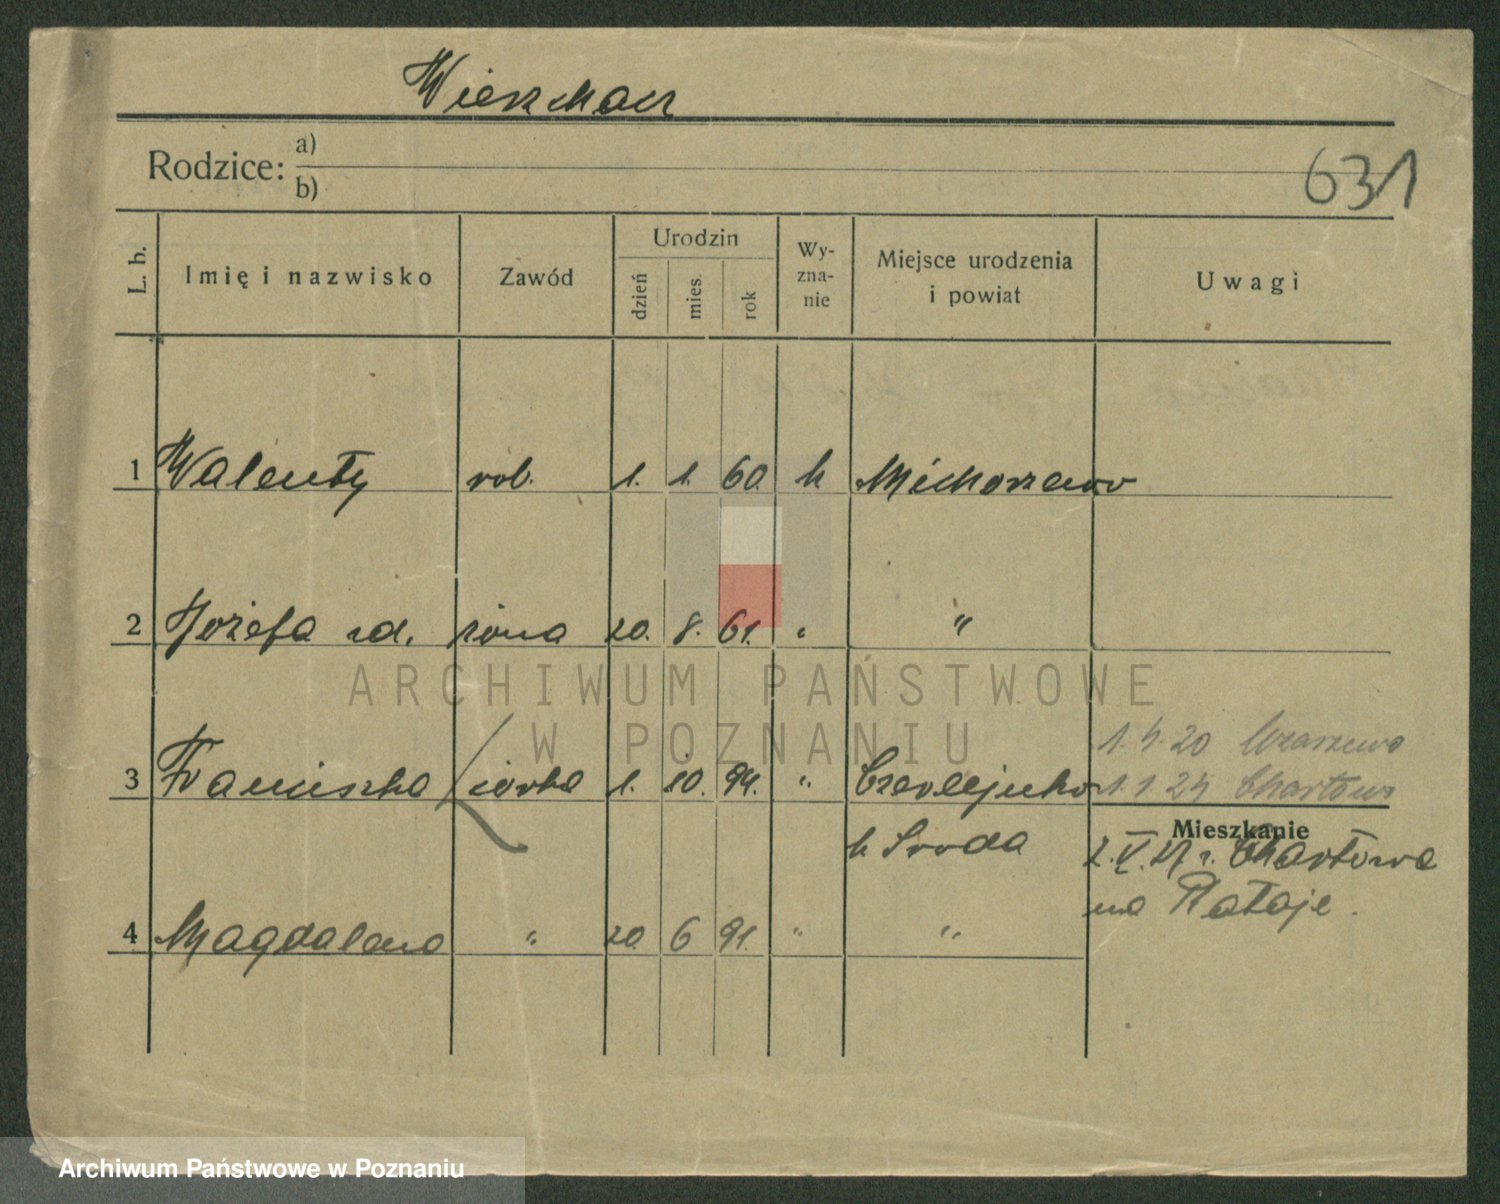 Wierzman
Rodzice: a)
b)
631
L. b.
Imię i nazwisko
Zawód
Urodzin
dzień
mies.
rok
Wy-
zna-
nie
Miejsce urodzenia
i powiat
Uwagi
1 Walenty rob. 1. 1. 60. k Michorzewo
2 Józefa zd. żona 20. 8. 61. " "
ARCHIWUM PAŃSTWOWE
W POZNANIU
1.4.20
3 Franciszka córka 1. 10. 94. " 1.1.24 Chartowo
Mieszkanie
k Środa Chartowa
na Rataje.
4 Magdalena " 20. 6 91. " "
Archiwum Państwowe w Poznaniu